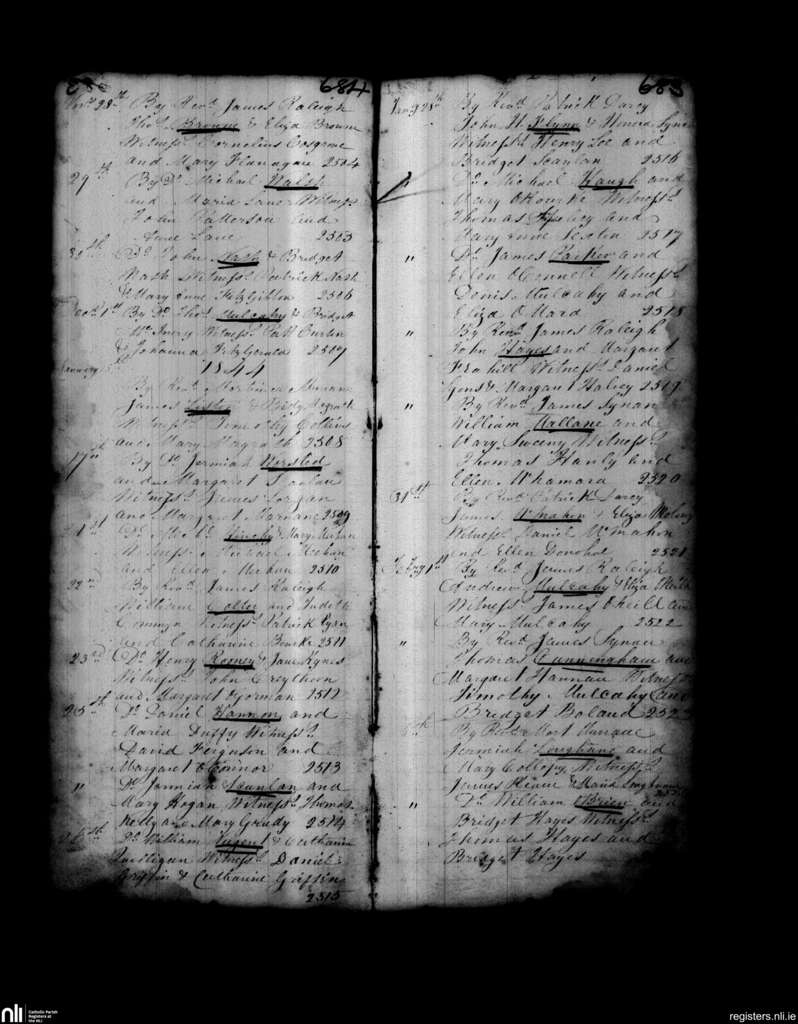 684
Novr 28th By Revd James Raleigh
Thos Browne & Eliza Browne
Witnesss Cornelius Cosgrove
and Mary Flanagan 2504
29th By Do Michael Walsh
and Maria Lane Witness
John Patterson and
Anne Lane 2505
30th Do John Nash & Bridget
Nash Witnesss Patrick Nash
& Mary Anne FitzGibbon 2506
Decr 1st By Do Thos Mulcahy & Bridget
McInery Witnesss Patt Curtin
& Johanna FitzGerald 2507
1844
January
By Revd Mortimer
James Lister & Biddy Magrath
Witnesss Timothy Collins
and Mary Magrath 2508
17th By Do Jermiah Worsled
and Margaret Scanlan
Witnesss James
and Margaret Marnane 2509
21st Do Michl Hinchy & Mary Meehan
Witnesss Michael Meehan
and Ellen Meehan 2510
22nd By Revd James Raleigh
William Colter and Judith
Witnesss Patrick Ryan
and Catharine Bourke 2511
23rd Do Henry Rooney & Jane Hynes
Witnesss John Creighern
and Margaret Ogorman 2512
25th Do Daniel Hannon and
Maria Duffy Witnesss
David Ferguson and
Margaret OConnor 2513
" Do Jermiah Scanlan and
Mary Hogan Witnesss Thomas
Kelly and Mary Grady 2514
26th Do William Nugent & Catharine
Costligan Witnesss Daniel
Griffin & Catharine Griffin
2515
685
Jany 28th By Revd Patrick Darcy
John H Flynn & Honora Lynch
Witnesss Henry Lee and
Bridget Scanlan 2516
" Do Michael Haugh and
Mary ORourke Witnesss
Thomas and
Mary Anne Sexton 2517
" Do James Parker and
Ellen OConnell Witnesss
Denis Mulcahy and
Eliza OMard 2518
" By Revd James Raleigh
John Hayes and Margaret
Frahill Witnesss Daniel
Lyons & Margaret Haley 2519
" By Revd James Synan
William Hallane and
Mary Sweeny Witnesss
Thomas Hanly and
Ellen McNamara 2520
31st By Revd Patrick Darcy
James McMahon & Eliza Molony
Witnesss Daniel McMahon
and Ellen Donohoe 2521
Febry 1st By Revd James Raleigh
Andrew Mulcahy & Eliza ONeill
Witnesss James ONeill and
Mary Mulcahy 2522
" By Revd James Synan
Thomas Cunningham and
Margaret Hannan Witnesss
Timothy Mulcahy and
Bridget Boland 2523
5th By Revd Mort
Jermiah Longhane and
Mary Collopy Witnesss
James Hinnie & Maria Longhane
" Do William OBrien and
Bridget Hayes Witnesss
Thomas Hayes and
Bridget Hayes
nli
Catholic Parish
Registers at
the NLI
registers.nli.ie